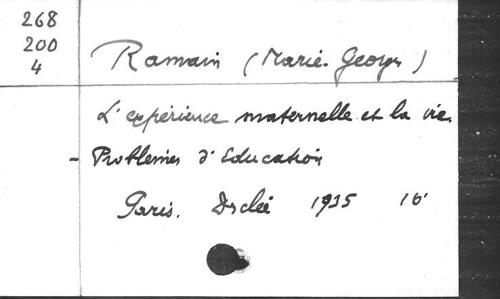 268
200
4
Ramain (Marie-Georges)
L'expérience maternelle et la vie.
- Problèmes d'Education
Paris. Dsclée 1935 16°